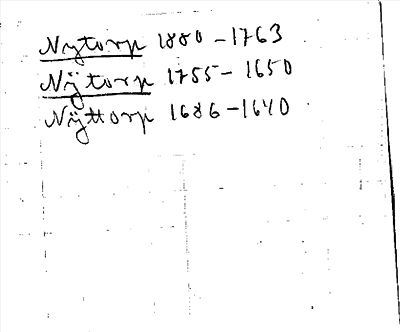 Nytorp 1880-1763
Nÿtorp 1755-1650
Nÿttorp 1686-1640